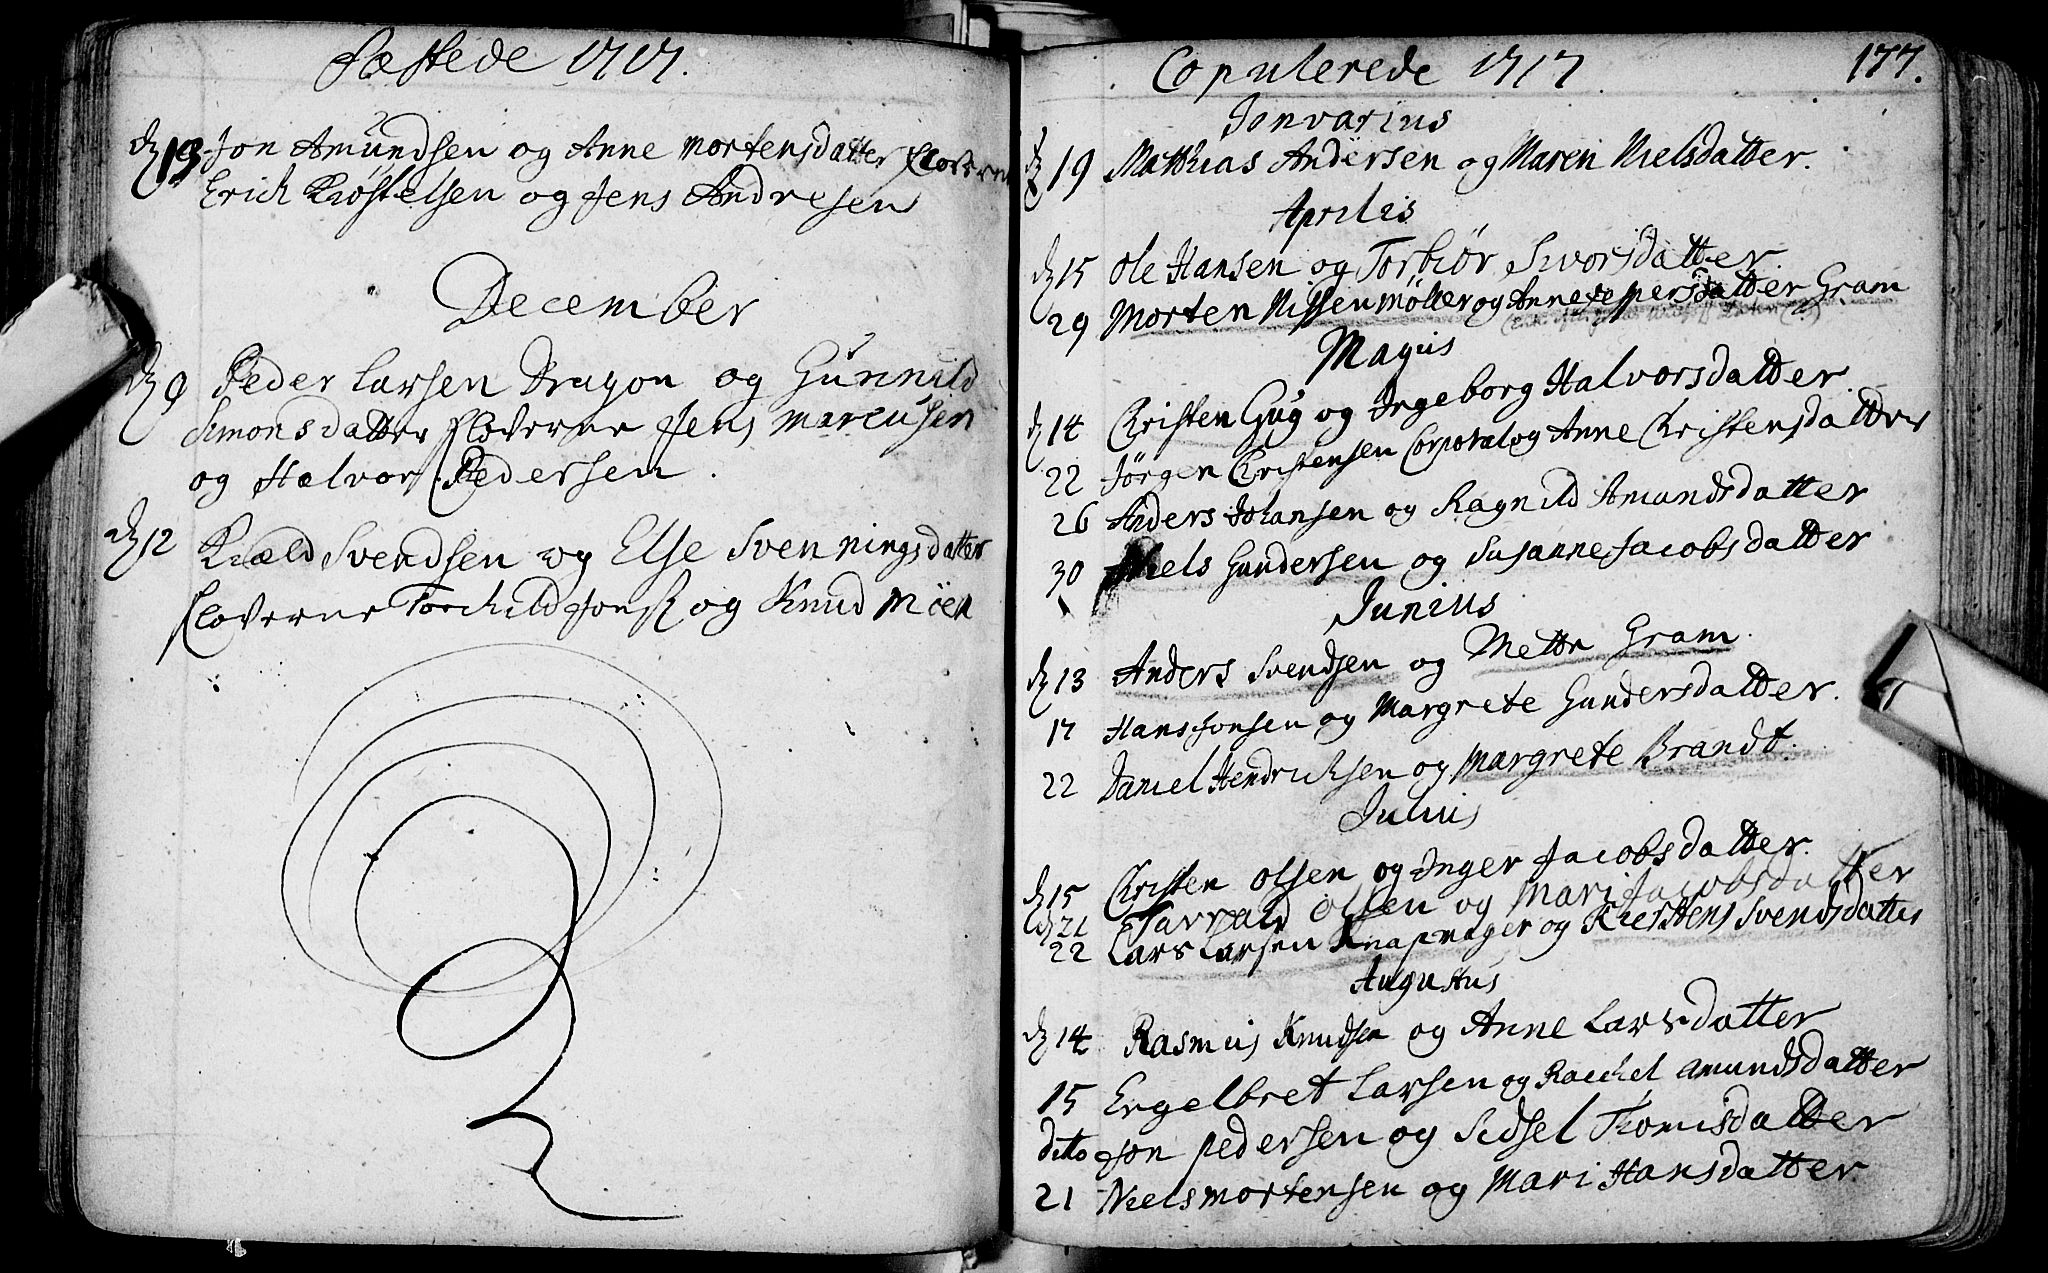 Fæstede 1717.
d 13 Jon Amündsen og Anne Mortensdatter
Erich Kiøstelsen og Jens Andresen
December
d 9 Peder Larsen Dragon og Gunnild
Simonsdatter Floverne Jens Marcusen
og Halvor Pedersen.
d 12 Kiæld Svendsen og Else Svenningsdatter
Floverne Torchild Jons og Knud Möen
Copulerede 1717 177.
Janvarius
d 19 Matthias Andersen og Maren Nielsdatter.
Aprilis
d 15 Ole Hansen og Torbiør Sivorsdatter
29 Morten Nissen Møller og Anne Jeppersdatter Gram
Majus
d 14 Christen Gug og Ingeborg Halvorsdatter
22 Jørgen Christensen Corporal og Anne Christensdatter
26 Anders Johansen og Ragnild Amundsdatter
30 Niels Gundersen og Susanne Jacobsdatter
Junius
d 13 Anders Svendsen og Mette Gram.
17 Hans Jonsen og Margrete Gundersdatter.
22 Daniel Hendrichsen og Margrete Brandt.
Julius
d 15 Christen Olsen og Inger Jacobsdatter.
d 21 Tarrald Olsen og Mari Jacobsdatter
22 Lars Larsen Knapmager og Kierstens Svendsdatter
Augustus
d 14 Rasmus Knudsen og Anne Larsdatter
15 Engelbret Larsen og Raechel Amundsdatter
dito Jon Pedersen og Sidsel Thomisdatter
21 Niels Mortensen og Mari Hansdatter.